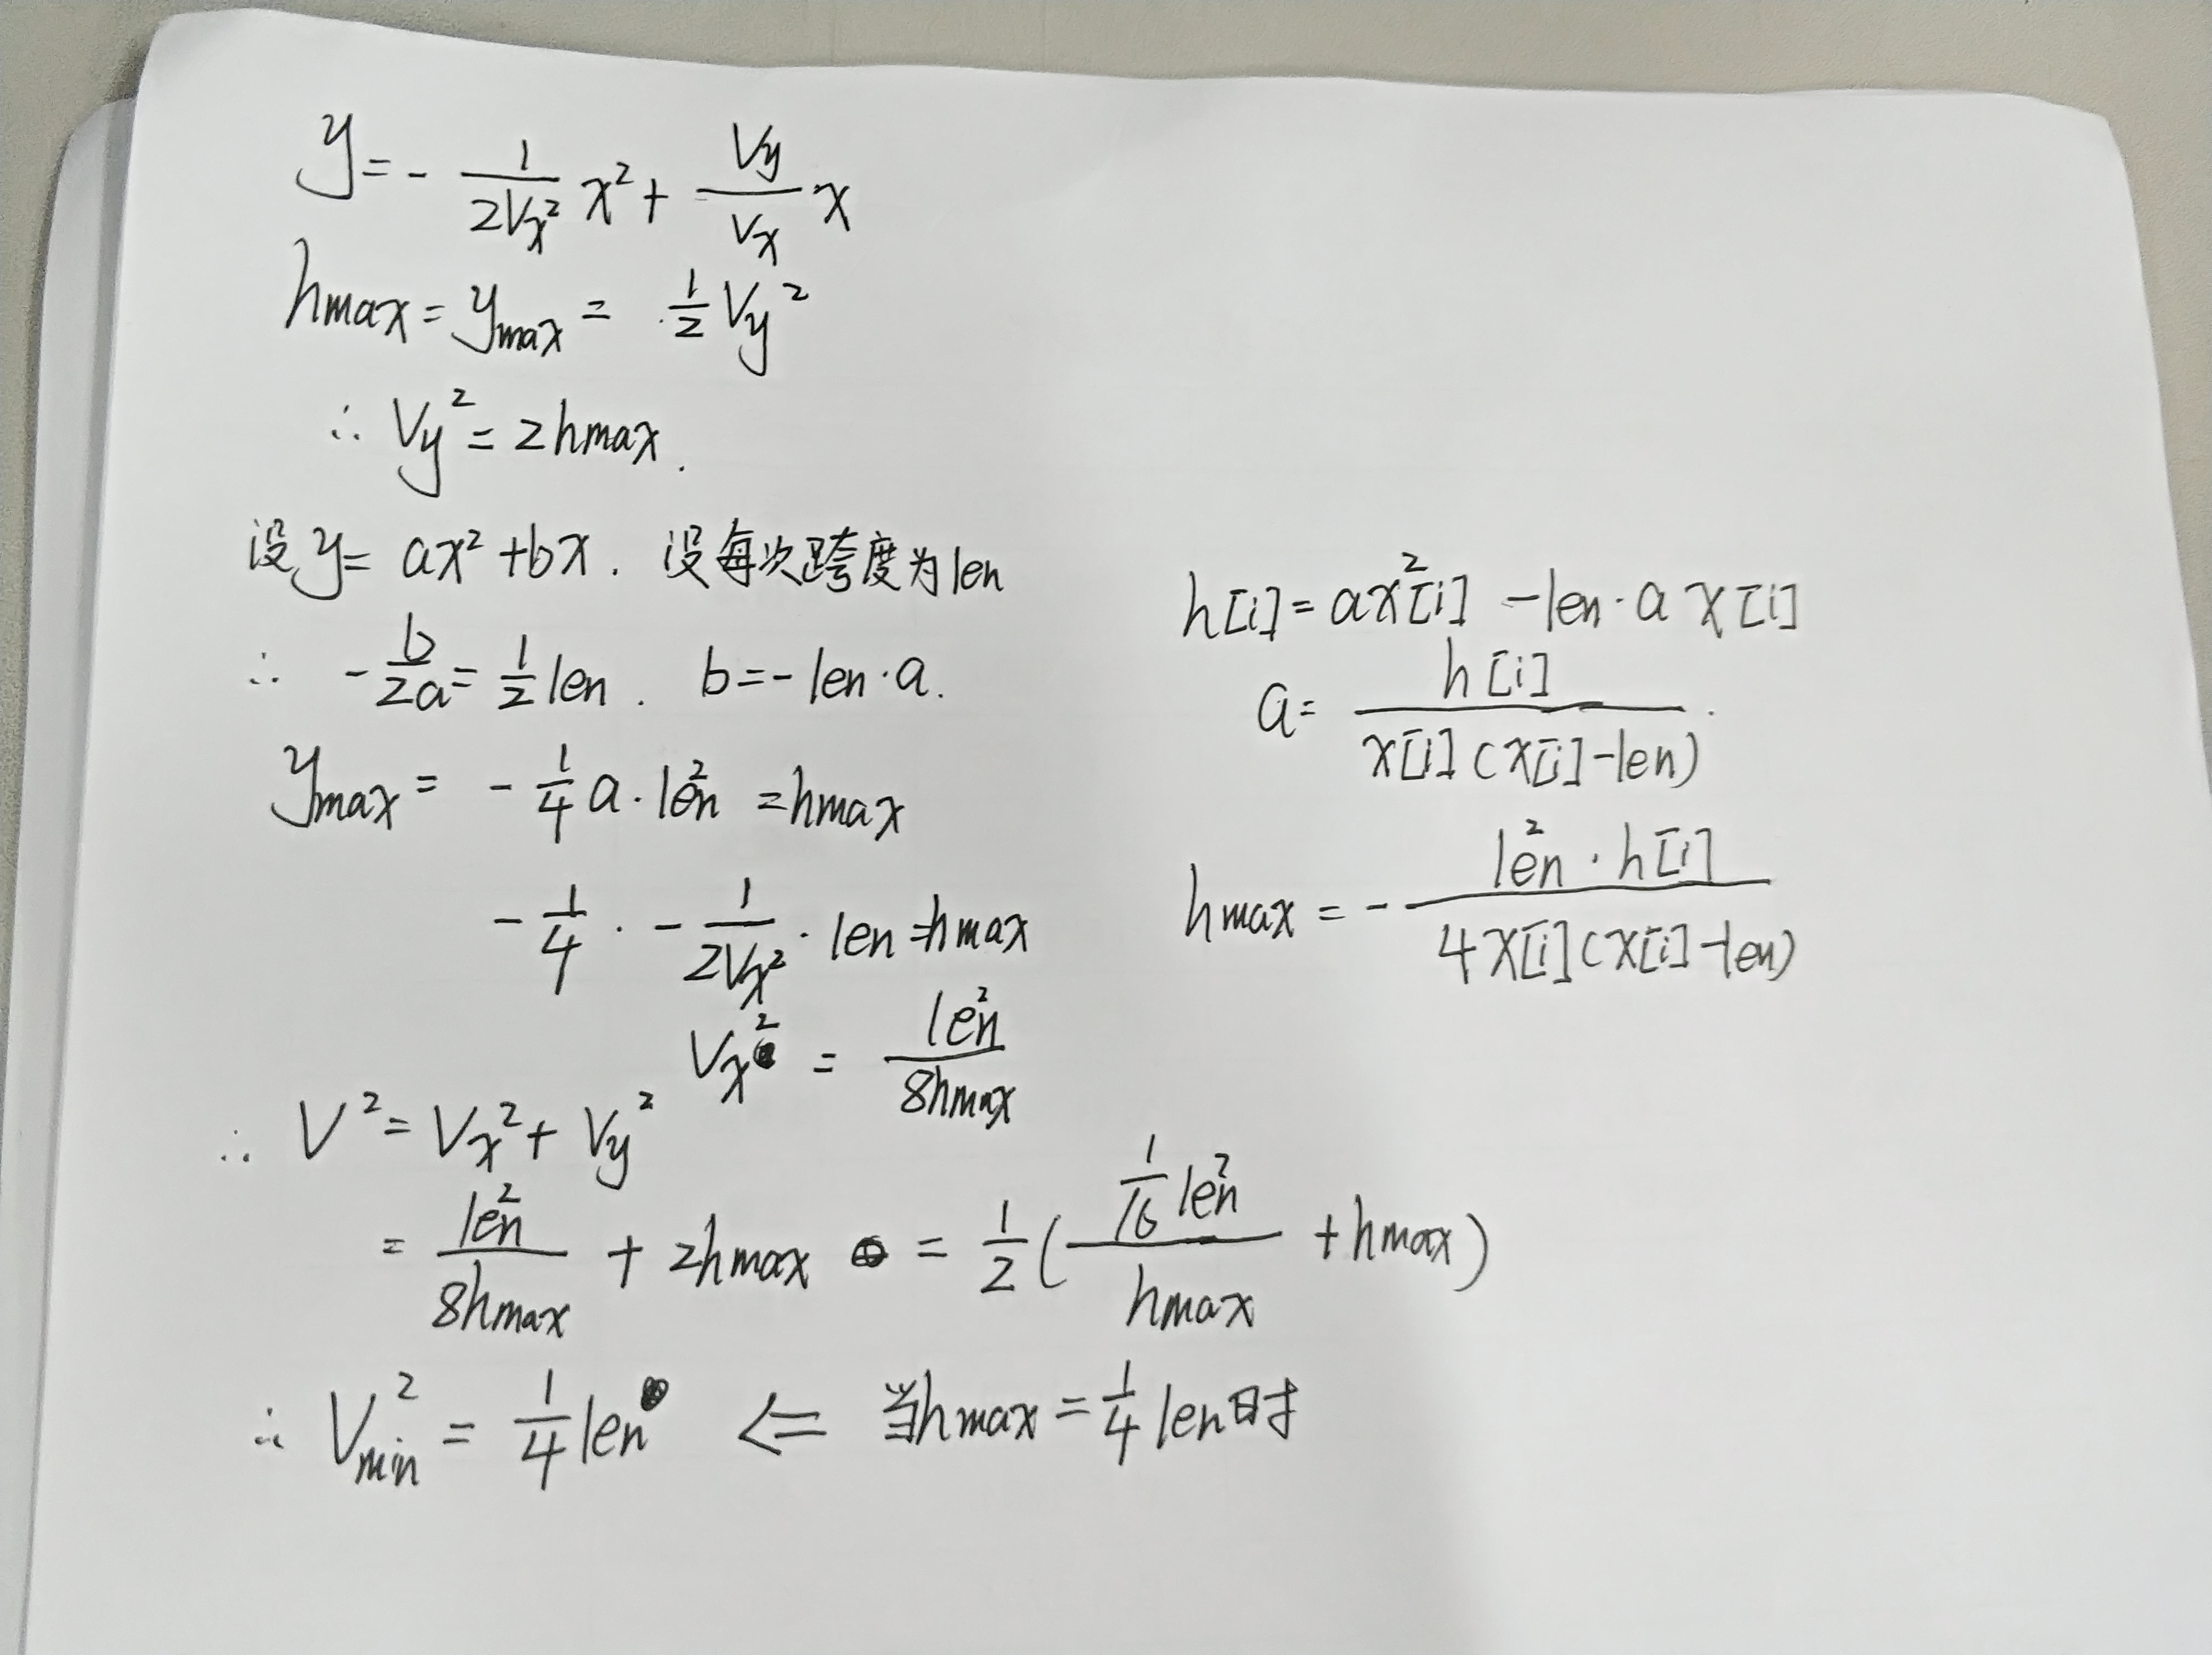 y = - \frac{1}{2V_x^2} x^2 + \frac{V_y}{V_x} x
hmax = y_{max} = \frac{1}{2} V_y^2
∴ V_y^2 = 2hmax.
设 y = ax^2 + bx. 设每次跨度为len
∴ -\frac{b}{2a} = \frac{1}{2} len. b = -len·a.
y_{max} = -\frac{1}{4} a·len^2 = hmax
-\frac{1}{4} · -\frac{1}{2V_x^2} · len = hmax
V_x^2 = \frac{len^2}{8hmax}
∴ V^2 = V_x^2 + V_y^2
= \frac{len^2}{8hmax} + 2hmax = \frac{1}{2} ( \frac{\frac{1}{16} len^2}{hmax} + hmax )
∴ V_{min}^2 = \frac{1}{4} len ⇐ 当hmax = \frac{1}{4} len时
h[i] = ax^2[i] - len·a x[i]
a = \frac{h[i]}{x[i](x[i]-len)}.
hmax = - \frac{len^2·h[i]}{4x[i](x[i]-len)}